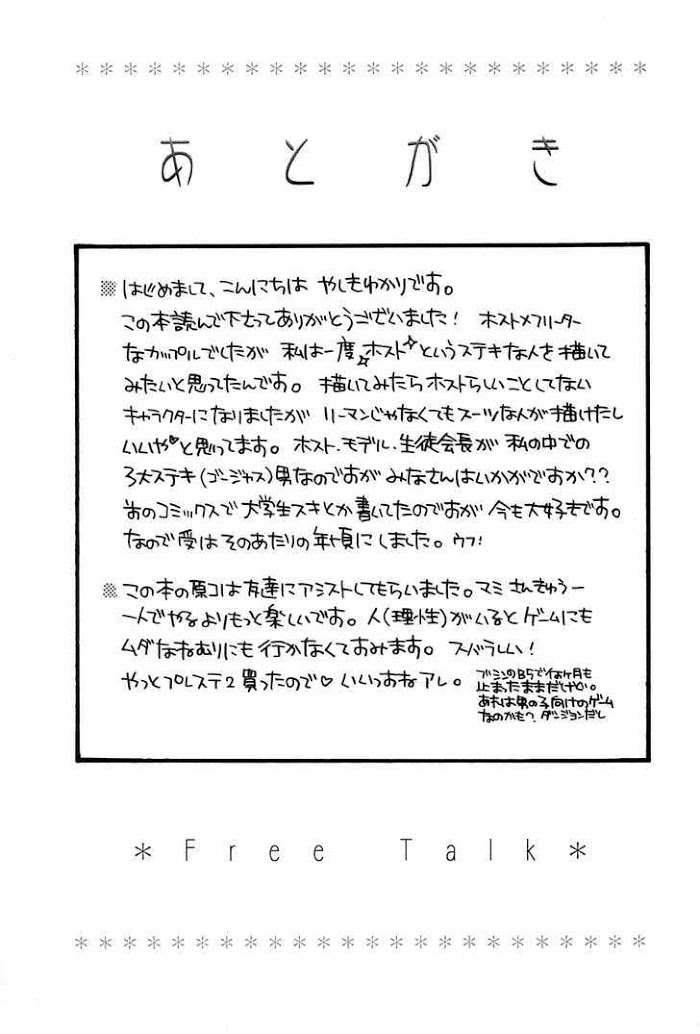 ＊＊＊＊＊＊＊＊＊＊＊＊＊＊＊＊＊＊＊＊＊＊＊＊
あとがき
※はじめまして、こんにちは やしきゆかりです。
この本読んで下さってありがとうございました! ホスト×フリーター
なカップルでしたが 私は一度☆ホスト☆というステキな人を描いて
みたいと思ってたんです。 描いてみたらホストらしいことしてない
キャラクターになりましたが リーマンじゃなくてもスーツな人が描けたし
いいや♥と思ってます。 ホスト、モデル、生徒会長が 私の中での
3大ステキ(ゴージャス)男なのですが みなさんはいかがですか??
前のコミックスで大学生スキとか書いてたのですが 今も大好きです。
なので受はそのあたりの年頃にしました。 ウフ!
※この本の原コは友達にアシストしてもらいました。マミ さんきゅうー
一人でやるよりもっと楽しいです。人(理性)がいるとゲームにも
ムダなねむりにも行かなくてすみます。 スバラしい!
やっとプレステ2買ったので♡ いいっすねアレ。
ブシンのB5で1ヶ月も
止まったままだけど。
あれは男の子向けのゲーム
なのかも? ダンジョンだし
＊Free Talk＊
＊＊＊＊＊＊＊＊＊＊＊＊＊＊＊＊＊＊＊＊＊＊＊＊